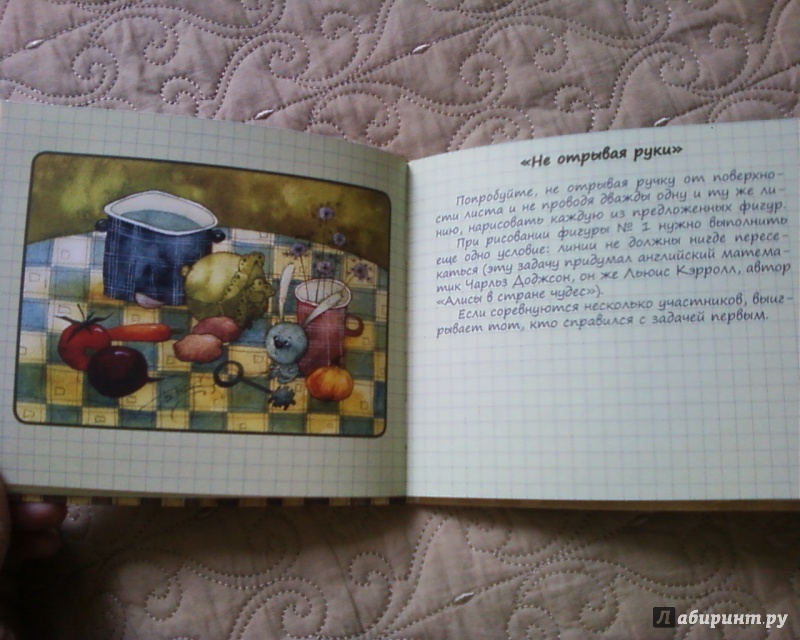 «Не отрывая руки»
Попробуйте, не отрывая ручку от поверхно-
сти листа и не проводя дважды одну и ту же ли-
нию, нарисовать каждую из предложенных фигур.
При рисовании фигуры № 1 нужно выполнить
еще одно условие: линии не должны нигде пересе-
каться (эту задачу придумал английский матема-
тик Чарльз Доджсон, он же Льюис Кэрролл, автор
«Алисы в стране чудес»).
Если соревнуются несколько участников, выиг-
рывает тот, кто справился с задачей первым.
Лабиринт.ру